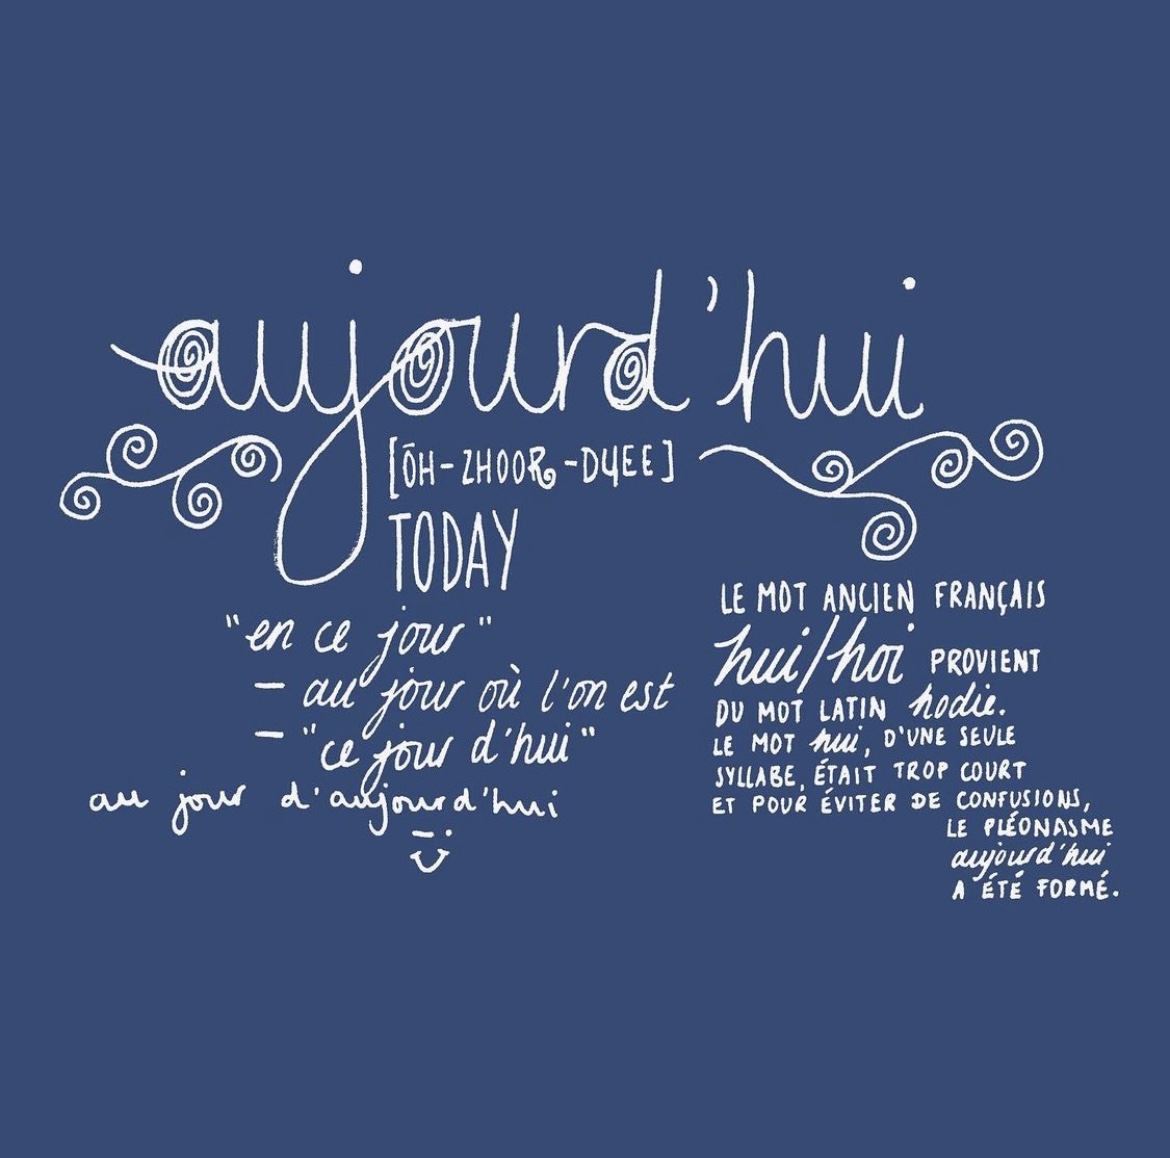 aujourd'hui
[ŌH-ZHOOR-DɥEE]
TODAY
"en ce jour"
– au jour où l'on est
– "ce jour d'hui"
au jour d'aujourd'hui
LE MOT ANCIEN FRANÇAIS
hui/hoi PROVIENT
DU MOT LATIN hodie.
LE MOT hui, D'UNE SEULE
SYLLABE, ÉTAIT TROP COURT
ET POUR ÉVITER DE CONFUSIONS,
LE PLÉONASME
aujourd'hui
A ÉTÉ FORMÉ.